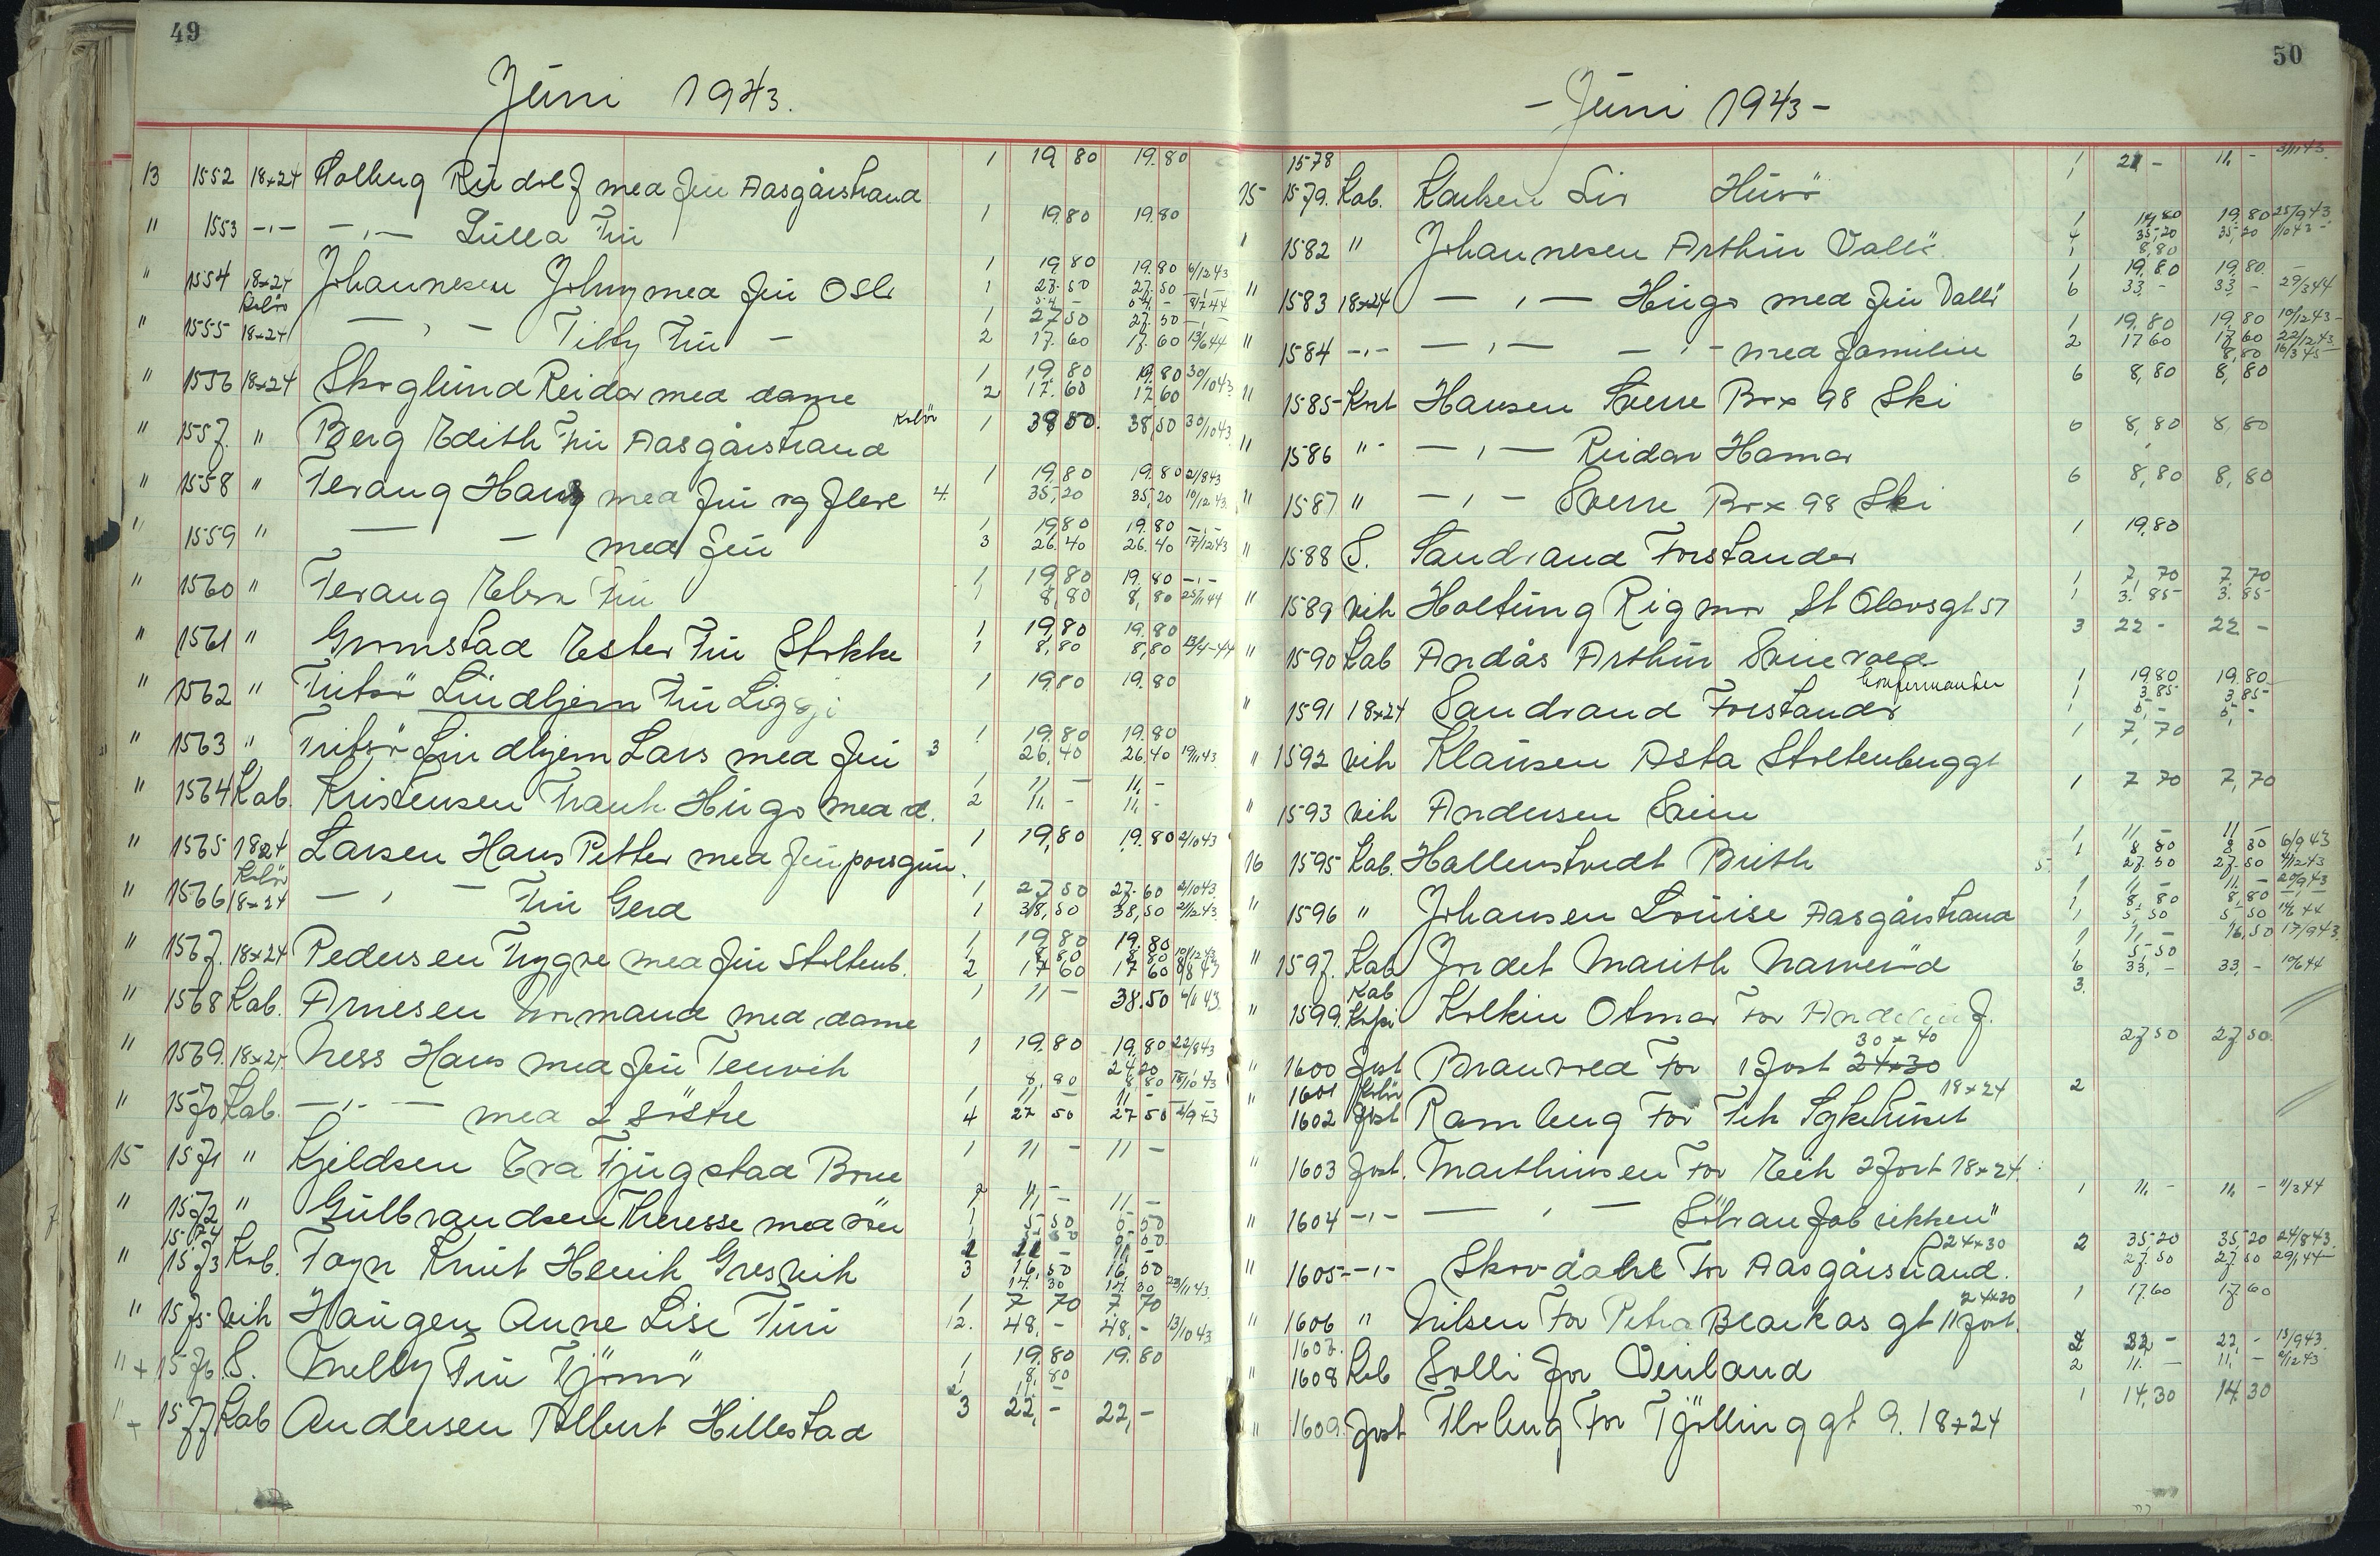 49
Juni 1943.
13 1552 18×24 Holberg Rudolf med fru Aasgårstrand 1 19,80 19.80
" 1553 -"- -"- Lulla Fru 1 19.80 19.80
" 1554 18×24 Johannesen Johny med fru Oslo 1 19 80 19.80 6/12 43
Kolör 1 27.50 27.50 -"-
" 1555 18×24 - " - Titty Fru - 1 27 50 27.50
2 17.60 17.60 13/6 44
" 1556 18×24 Skoglund Reidar med dame 1 19.80 19.80 30/10 43
2 17.60 17 60
" 1557. " Berg Edith Fru Aasgårstrand Kolör 1 38 50. 38,50 30/10 43
" 1558 " Terang Hans med fru og flere 1 19.80 19.80 21/8 43
4. 35,20 35,20 10/12 43.
" 1559 " - - med fru 1 19.80 19.80 -"-
3 26.40 26.40 17/12 43
" 1560 " Terang Ebon Fru 1 19,80 19.80 -"-
1 8,80 8,80 25/11 44
" 1561 " Gromstad Ester Fru Stokke 1 19,80 19.80
1 8,80 8,80 13/4-44
" 1562 " Fritsö Lindhjem Fru 1 19.80 19.80
" 1563 " Fritsö Lindhjem Lars med fru 1 19.80 19.80
3 26,40 26,40 19/11 43
" 1564 Kab. Kristensen Frank Hugo med d. 1 11 - 11, -
2 11, - 11, -
" 1565 18×24 Larsen Hans Petter med fru porsgrun. 1 19,80 19.80 2/10 43
Kolör
" 1566 18×24 - " - Fru Gerd 1 27 50 27.60 2/10 43
1 38,50 38,50 2/12 43
" 1567. 18×24 Pedersen Trygve med fru Stoltenb. 1 19.80 19.80
8,80 8 80 10/12 43
2 17 60 17 60
" 1568 Kab. Arnesen Normand med dame 1 11 - 38.50 6/11 43.
" 1569. 18×24 Ness Hans med fru Tenvik 1 19.80 19.80 22/8 43
24 20
8,80 8.80 15/10 43
" 1570 Kab. -"- med 2 söstre 1 11 - 11 -
4 27 50 27 50 2/9 43
15 1571 " Kjeldsen Eva Fjugstad Borre 1 11 - 11 -
" 1572 " Gulbrandsen Theresse med sön 2 11, - 11, -
1574 1 5 50 5 50
" 1573 Kab. Foyn Knut Henrik Gresvik 2 11 - 11, -
3 16,50 16,50
14. 30 14. 30 23/11 43.
" 1575 vih Haugen Anne Lise Furi 1 7 70 7 70
12. 48, - 48, - 13/10 43
" + 1576 S. Melby Fru Tjömö 1 19.80 19.80
1 8,80
" + 1577 Kab Andersen Tolbert Hillestad 2 11, -
3 22, - 22, -
50
- Juni 1943 -
1578 1 21 - 11, - 3/11 43.
15 1579. Kab. Karlsen Liv Husö 1
" 1582 " Johannesen Arthur Vallö 1 19,80 19.80 25/9 43
4 35,20 35,20
1 8,80
" 1583 18×24 - " - Hugo med fru Vallö 1 19.80 19.80. -
6 33, - 33, - 29/3 44
" 1584 -"- - " - - " - med familie 1 19.80 19.80 10/12 43-
2 17 60 17,60 22/12 43
8,80 16/3 45-
" 1585 Kort Hansen Sverre Box 98 Ski 6 8,80 8,80
" 1586 " - " - Reidar Hamar 6 8,80 8,80
" 1587 " - " - Sverre Box 98 Ski 6 8,80 8,80
" 1588 S. Sandrand Forstander 1 19,80
" 1589 vih Holtung Rigmor St Olavsgt 57 1 7,70 7.70
1 3.85- 3.85-
" 1590 Kab Andås Arthur Svinevold 3 22 - 22 -
" 1591 18×24 Sandrand Forstander 1 19.80 19.80
1 3.85- 3.85-
1 5, - 5, -
" 1592 vih Klausen Asta Stoltenberggt 1 7,70
" 1593 vih Andersen Svein 1 7 70 7,70
16 1595 Kab. Hallenstvedt Brith 1 11 - 11 -
1 8 80 8 80 6/9 43
5. 27.50 27.50 4/12 43
" 1596 " Johansen Louise Aasgårstrand 1 11 - 11. - 20/9 43
1, 8,80 8,80 -"-
1, 5,50 5,50
" 1597. Kab Jordet Marith Namerö 1 11, - 16,50 17/9 43.
1, 5,50
6 33, - 33, - 10/6 44
Kab 3.
" 1599. Kopi Kolkin Otmar For
30 × 40
" 1600 forst Branvold For 1 forst 24×30 27 50 27 50.
" 1601 Kolör 18×24
1602 forst Ramberg For Teh Sykehuset 2
" 1603 forst. Marthinsen For Eik 2 forst 18×24.
" 1604 -"- - " - Sölvanfabrikken" 1 11, - 11, - 11/3 44
24×30
" 1605 -"- Skovdahl For Aasgårstrand. 2 35-20 35-20 24/8 43
27.50 27.50 29/1 44
24×30
" 1606 " Nilsen For Petra Blarkas gt 11 forst. 1 17.60 17.60
1607.
1608 Kab Solli for Venland 2 22 - 22, - 13/9 43.
2 11. - 11, - 2/12 43
" 1609. forst Floberg For Tjöllinggt 9. 18×24 1 14,30 14.30